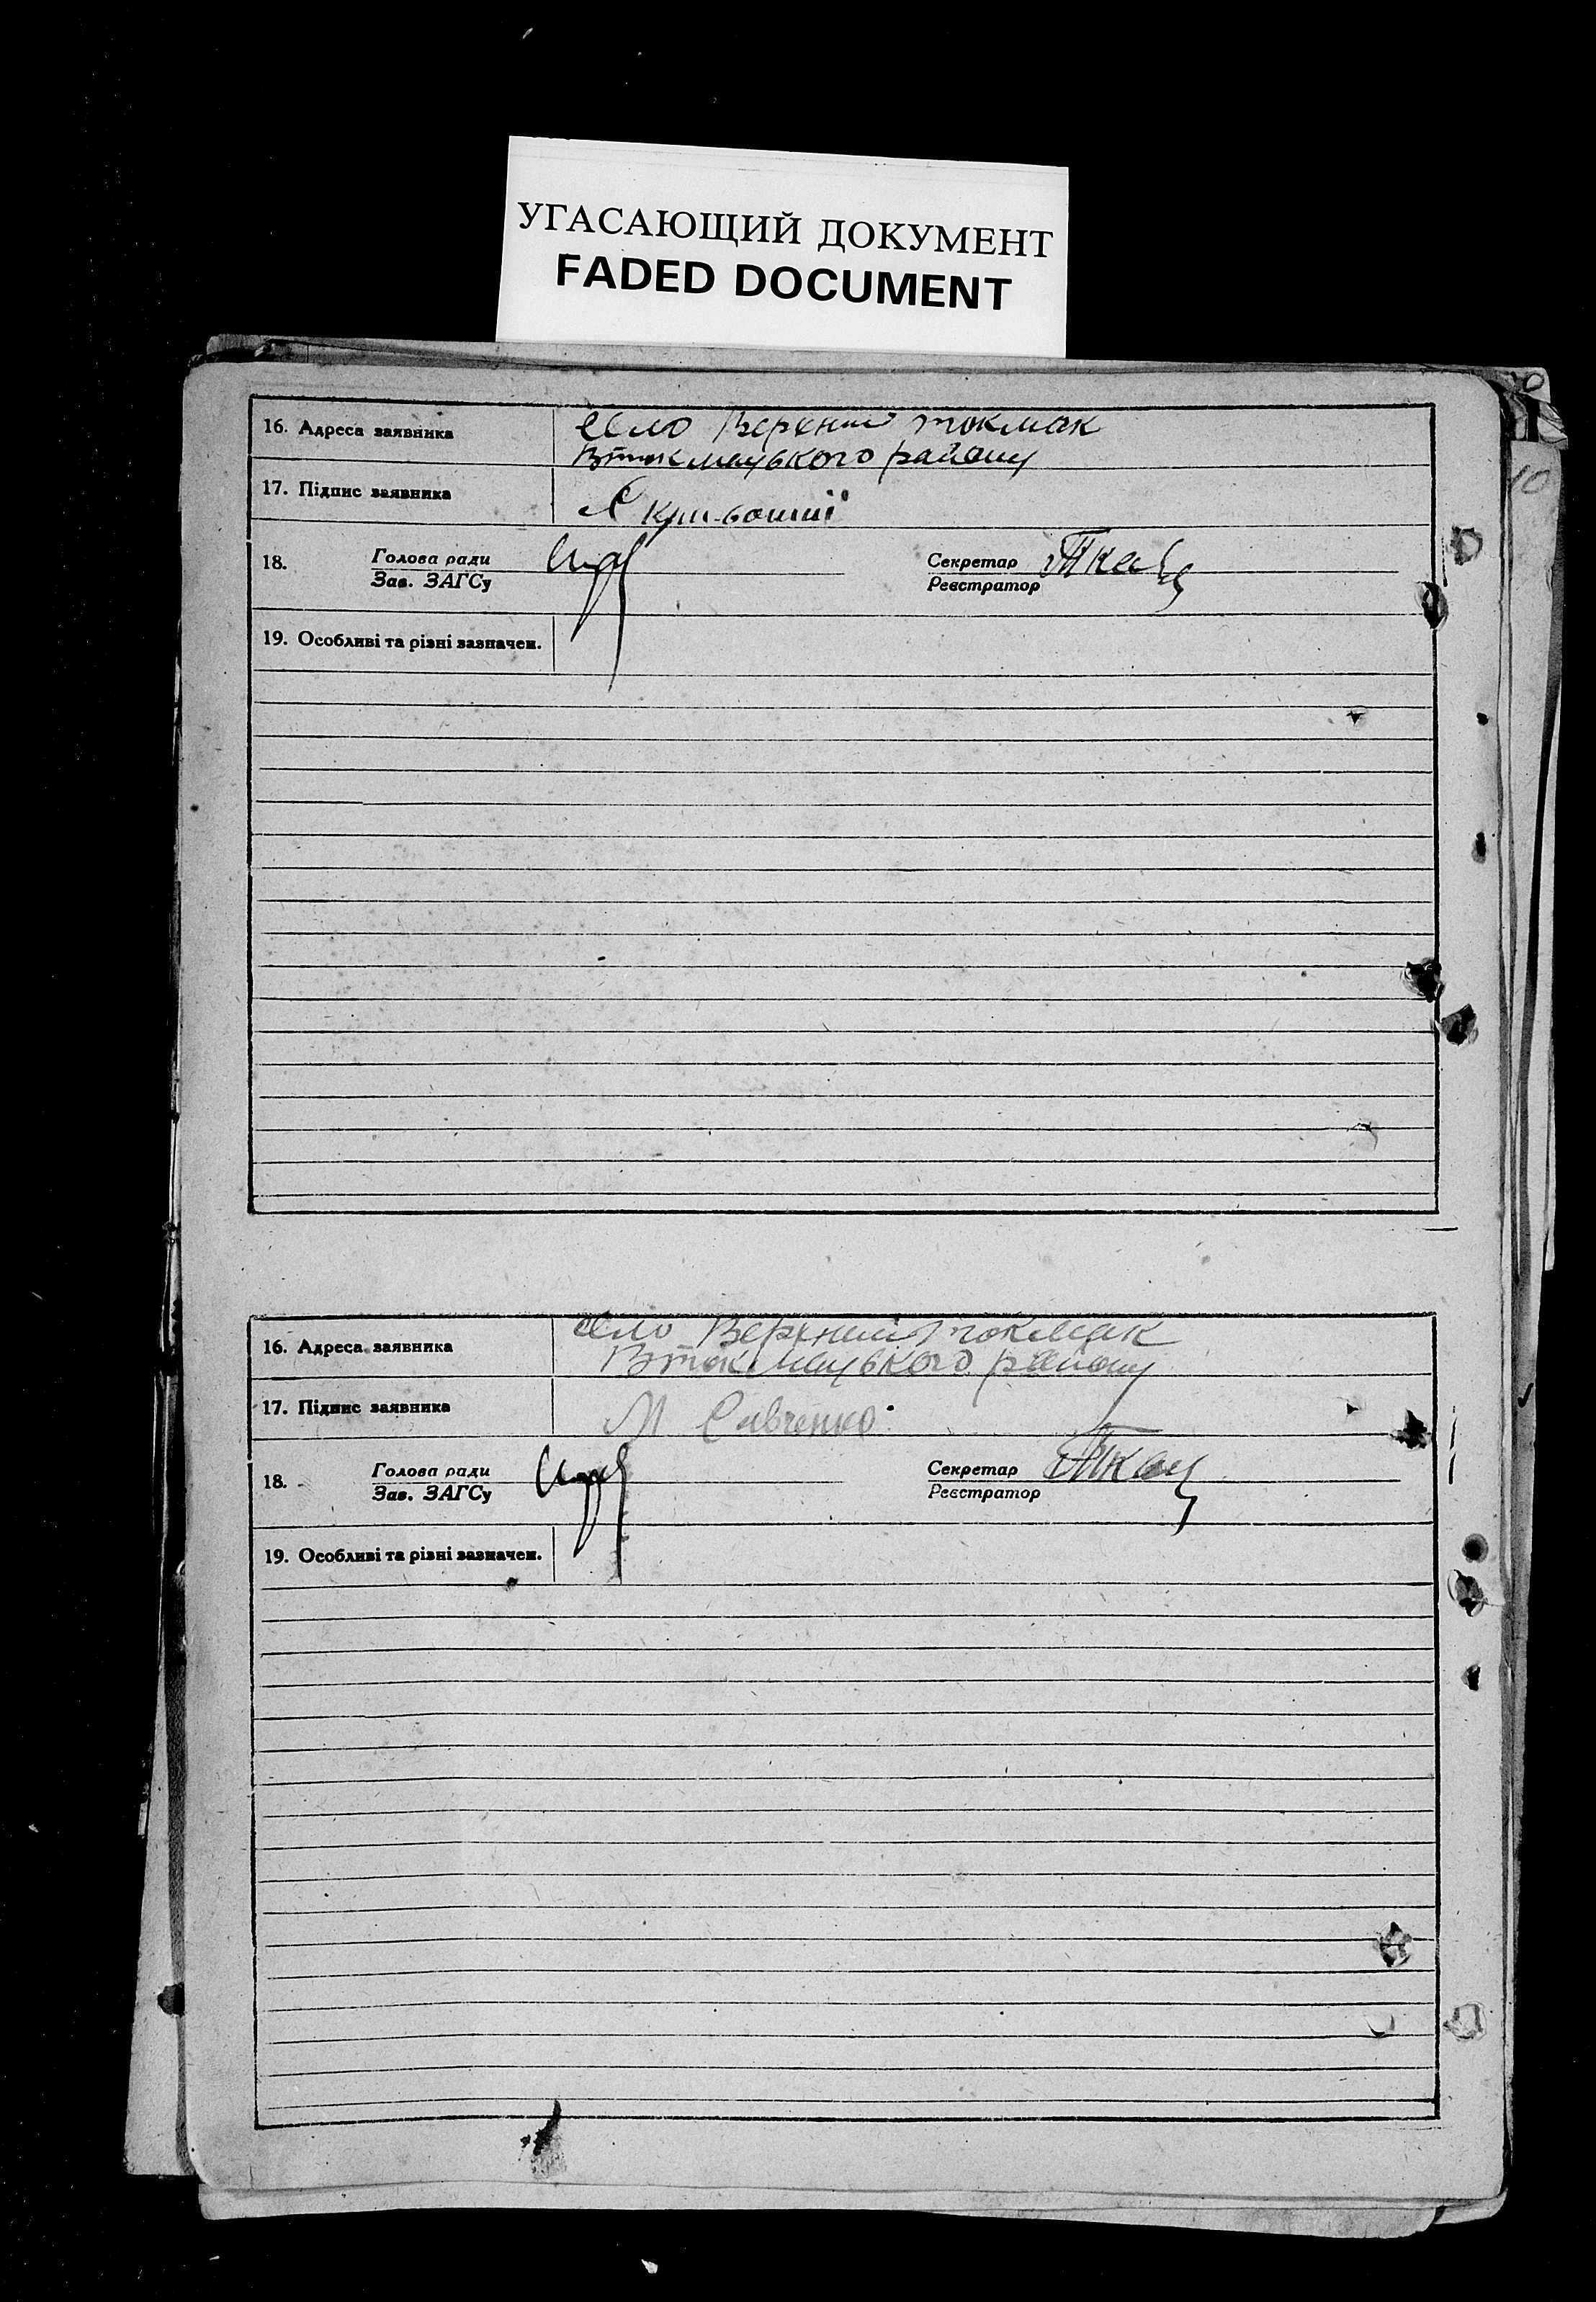 УГАСАЮЩИЙ ДОКУМЕНТ
FADED DOCUMENT
16. Адреса заявника село Верхний токмак
Втокмацького району
17. Підпис заявника
18. Голова ради Секретар
Зав. ЗАГСу Реєстратор
19. Особливі та різні зазначен.
16. Адреса заявника село Верхний токмак
Втокмацького району
17. Підпис заявника М Савченко
18. Голова ради Секретар
Зав. ЗАГСу Реєстратор
19. Особливі та різні зазначен.